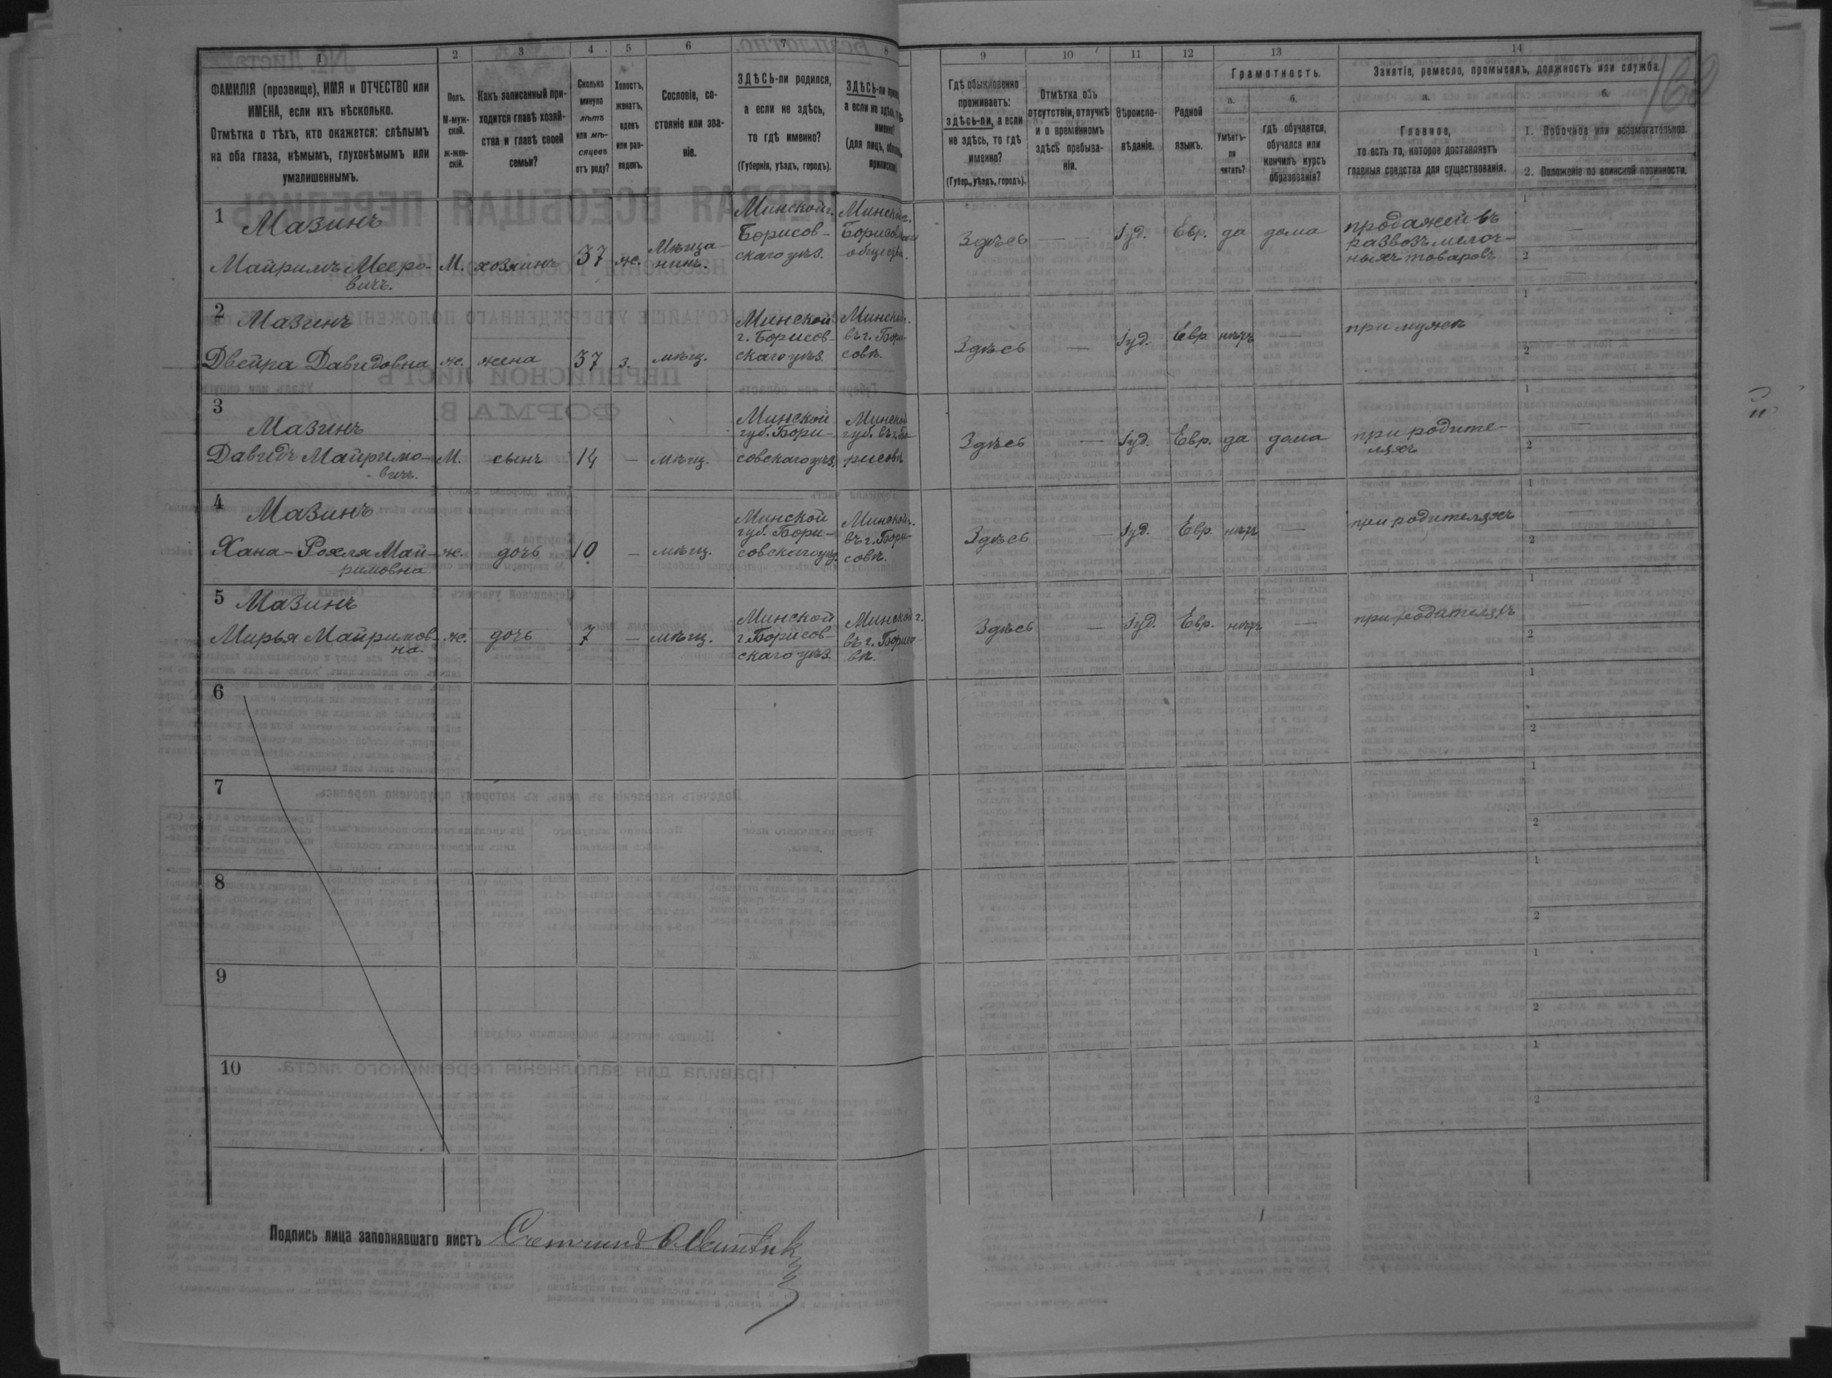 1 2 3 4 5 6 7 8 9 10 11 12 13 14
ФАМИЛІЯ (прозвище), ИМЯ и ОТЧЕСТВО или
ИМЕНА, если ихъ нѣсколько.
Отмѣтка о тѣхъ, кто окажется: слѣпымъ
на оба глаза, нѣмымъ, глухонѣмымъ или
умалишеннымъ.
Полъ.
М-муж-
ской.
ж-жен-
скій.
Какъ записанный при-
ходится главѣ хозяй-
ства и главѣ своей
семьи?
Сколько
минуло
лѣтъ
или мѣ-
сяцевъ
отъ роду?
Холостъ,
женатъ,
вдовъ
или раз-
веденъ.
Сословіе, со-
стояніе или зва-
ніе.
ЗДѢСЬ-ли родился,
а если не здѣсь,
то гдѣ именно?
(Губернія, уѣздъ, городъ).
ЗДѢСЬ-ли
а если не здѣсь,
Гдѣ обыкновенно
проживаетъ:
здѣсь-ли, а если
не здѣсь, то гдѣ
именно?
(Губер., уѣздъ, городъ).
Отмѣтка объ
отсутствіи, отлучкѣ
и о временномъ
здѣсь пребыва-
ніи.
Вѣроиспо-
вѣданіе.
Родной
языкъ.
Грамотность.
а.
Умѣетъ-
ли
читать?
б.
гдѣ обучается,
обучался или
кончилъ курсъ
образованія?
Занятіе, ремесло, промыселъ, должность или служба.
а.
Главное,
то есть то, которое доставляетъ
главныя средства для существованія.
б.
1. Побочное или вспомогательное.
2. Положеніе по воинской повинности.
1 Мазинъ
Майримъ Мееро-
вичъ.
М. хозяинъ 37 же. Мѣща-
нинъ.
Минской г.
Борисов-
скаго уѣз.
Здѣсь — — Іуд. Евр. да дома
продажей въ
развозъ мелоч-
ныхъ товаровъ
2 Мазинъ
Двейра Давидовна ж. жена 37 з. мѣщ.
Минской
г. Борисов-
скаго уѣз.
Здѣсь — Іуд. Евр нѣтъ — при мужѣ
3 Мазинъ
Давидъ Майримо-
вичъ.
М. сынъ 14 — мѣщ.
Минской
губ. Бори-
совскаго уѣз.
Здѣсь — Іуд. Евр. да дома
при родите-
ляхъ
4 Мазинъ
Хана-Рохля Май-
римовна
ж. дочь 10 — мѣщ.
Минской
губ. Бори-
совскаго уѣз.
Минской г.
въ г. Бори-
совѣ.
Здѣсь — Іуд. Евр. нѣтъ — при родителяхъ
5 Мазинъ
Мирья Майримов-
на
ж. дочь 7 — мѣщ.
Минской
г. Борисов-
скаго уѣз.
Минской г.
въ г. Борисо-
вѣ.
Здѣсь — Іуд. Евр. нѣтъ — при родителяхъ
6
7
8
9
10
Подпись лица заполнявшаго листъ